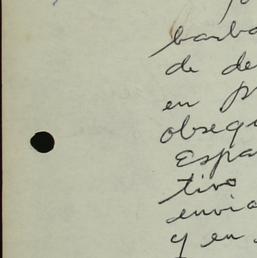 barba
de de
en p
obsequ
Espa
tivo
envia
y en